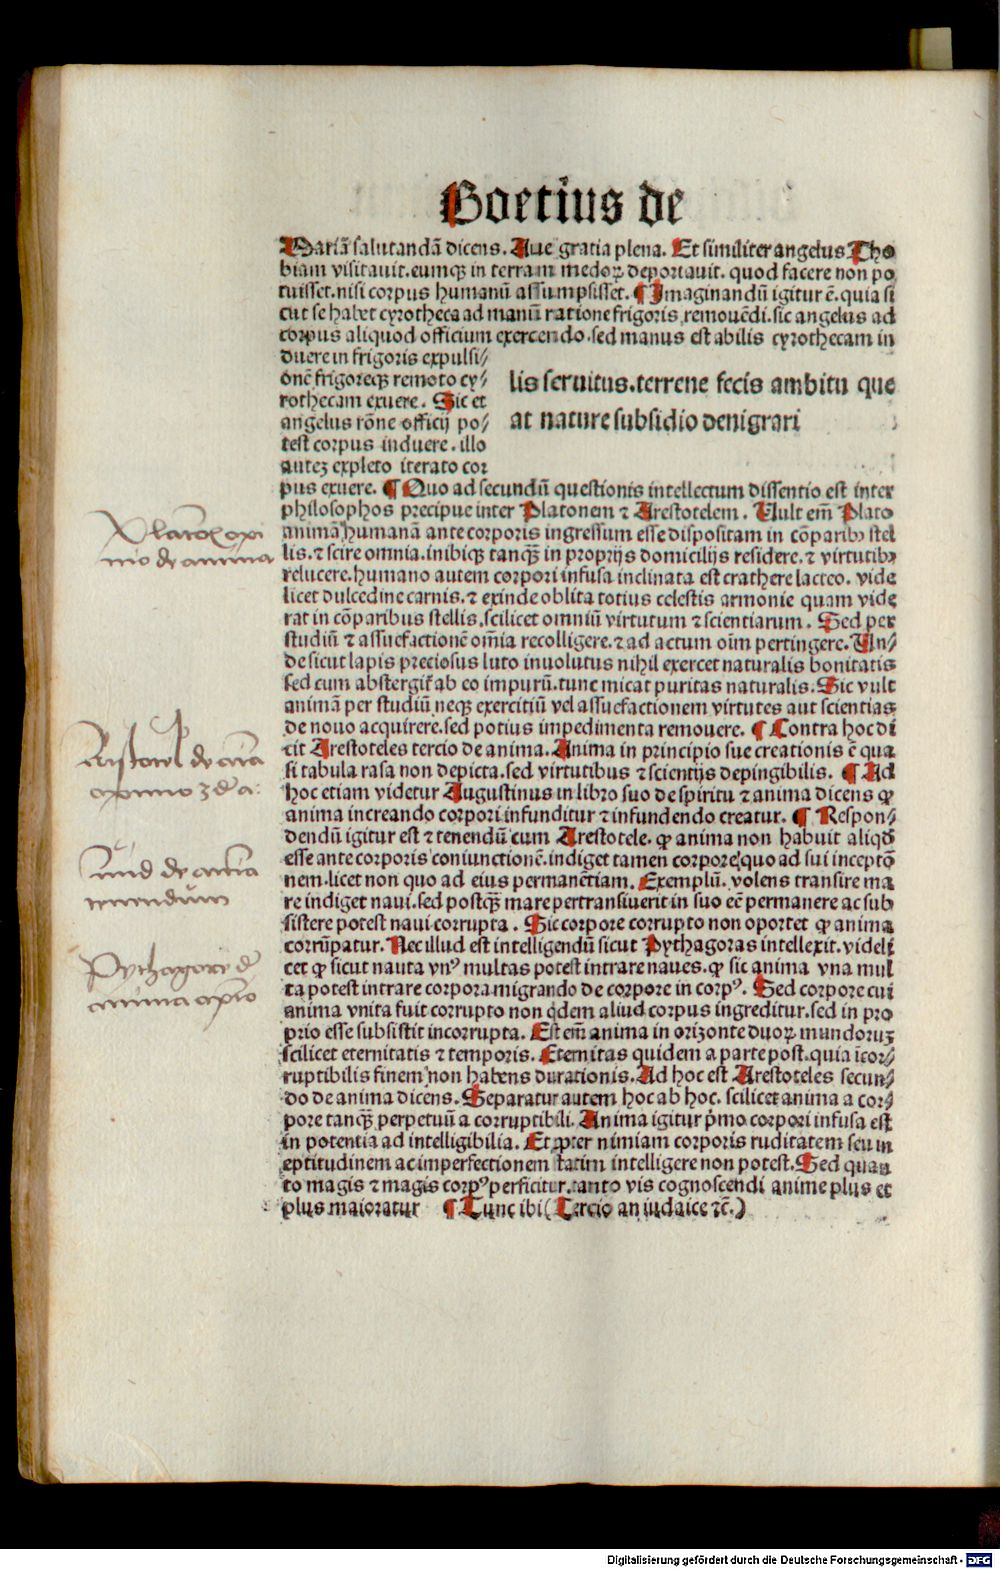 Boetius de
Mariã salutandã dicens. Aue gratia plena. Et similiter angelus Tho
biam visitauit. eumqꝫ in terram medoꝝ deportauit. quod facere non po
tuisset. nisi corpus humanũ assumpsisset. ¶ Imaginandũ igitur ẽ. quia si
cut se habet cyrotheca ad manũ ratione frigoris remouẽdi. sic angelus ad
corpus aliquod officium exercendo. sed manus est abilis cyrothecam in
duere in frigoris expulsi⸗
onẽ frigoreqꝫ remoto cy⸗
rothecam exuere. Sic et
angelus rõne officij po⸗
test corpus induere. illo
auteꝫ expleto iterato cor
lis seruitus. terrene fecis ambitu que
at nature subsidio denigrari
pus exuere. ¶ Quo ad secundũ questionis intellectum dissentio est inter
philosophos precipue inter Platonem ⁊ Arestotelem. Uult em̃ Plato
animã humanã ante corporis ingressum esse dispositam in cõparibꝰ stel
lis. ⁊ scire omnia. inibiqꝫ tanqꝫ̃ in proprijs domicilijs residere. ⁊ virtutibꝰ
relucere. humano autem corpori infusa inclinata est crathere lacteo. vide
licet dulcedine carnis. ⁊ exinde oblita totius celestis armonie quam vide
rat in cõparibus stellis. scilicet omniũ virtutum ⁊ scientiarum. Sed per
studiũ ⁊ assuefactionẽ om̃ia recolligere. ⁊ ad actum oĩm pertingere. Un⸗
de sicut lapis preciosus luto inuolutus nihil exercet naturalis bonitatis
sed cum abstergit᷑ ab eo impurũ. tunc micat puritas naturalis. Sic vult
animã per studiũ neqꝫ exercitiũ vel assuefactionem virtutes aut scientias
de nouo acquirere. sed potius impedimenta remouere. ¶ Contra hoc di
cit Arestoteles tercio de anima. Anima in principio sue creationis ẽ qua
si tabula rasa non depicta. sed virtutibus ⁊ scientijs depingibilis. ¶ Ad
hoc etiam videtur Augustinus in libro suo de spiritu ⁊ anima dicens ꝙ
anima increando corpori infunditur ⁊ infundendo creatur. ¶ Respon⸗
dendũ igitur est ⁊ tenendũ cum Arestotele. ꝙ anima non habuit aliqđ
esse ante corporis coniunctionẽ. indiget tamen corpore quo ad sui inceptõ
nem. licet non quo ad eius permanẽtiam. Exemplũ. volens transire ma
re indiget naui. sed postqꝫ̃ mare pertransiuerit in suo eẽ permanere ac sub
sistere potest naui corrupta. Sic corpore corrupto non oportet ꝙ anima
corrũpatur. Nec illud est intelligendũ sicut Pythagoras intellexit. videli
cet ꝙ sicut nauta vnꝰ multas potest intrare naues. ꝙ sic anima vna mul
ta potest intrare corpora migrando de corpore in corpꝰ. Sed corpore cui
anima vnita fuit corrupto non q̇dem aliud corpus ingreditur. sed in pro
prio esse subsistit incorrupta. Est em̃ anima in orizonte duoꝝ mundoruꝫ
scilicet eternitatis ⁊ temporis. Eternitas quidem a parte post. quia ĩcor⸗
ruptibilis finem non habens durationis. Ad hoc est Arestoteles secun⸗
do de anima dicens. Separatur autem hoc ab hoc. scilicet anima a cor⸗
pore tanqꝫ̃ perpetuũ a corruptibili. Anima igitur p̃mo corpori infusa est
in potentia ad intelligibilia. Et ꝓpter nimiam corporis ruditatem seu in
eptitudinem ac imperfectionem statim intelligere non potest. Sed quan
to magis ⁊ magis corpꝰ perficitur. tanto vis cognoscendi anime plus et
plus maioratur ¶ Tunc ibi (Tercio an iudaice ⁊c̃.)
Platoĩs opi
nio de anima
Aristotel de aĩa
opinio 3 de a:
Pythagore de
anima opinio
Digitalisierung gefördert durch die Deutsche Forschungsgemeinschaft - DFG